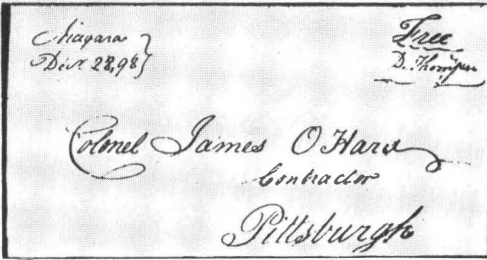 Niagara
Decr 28, 98
Free
D. Thompson
Colonel James O Hara
Contractor
Pittsburgh